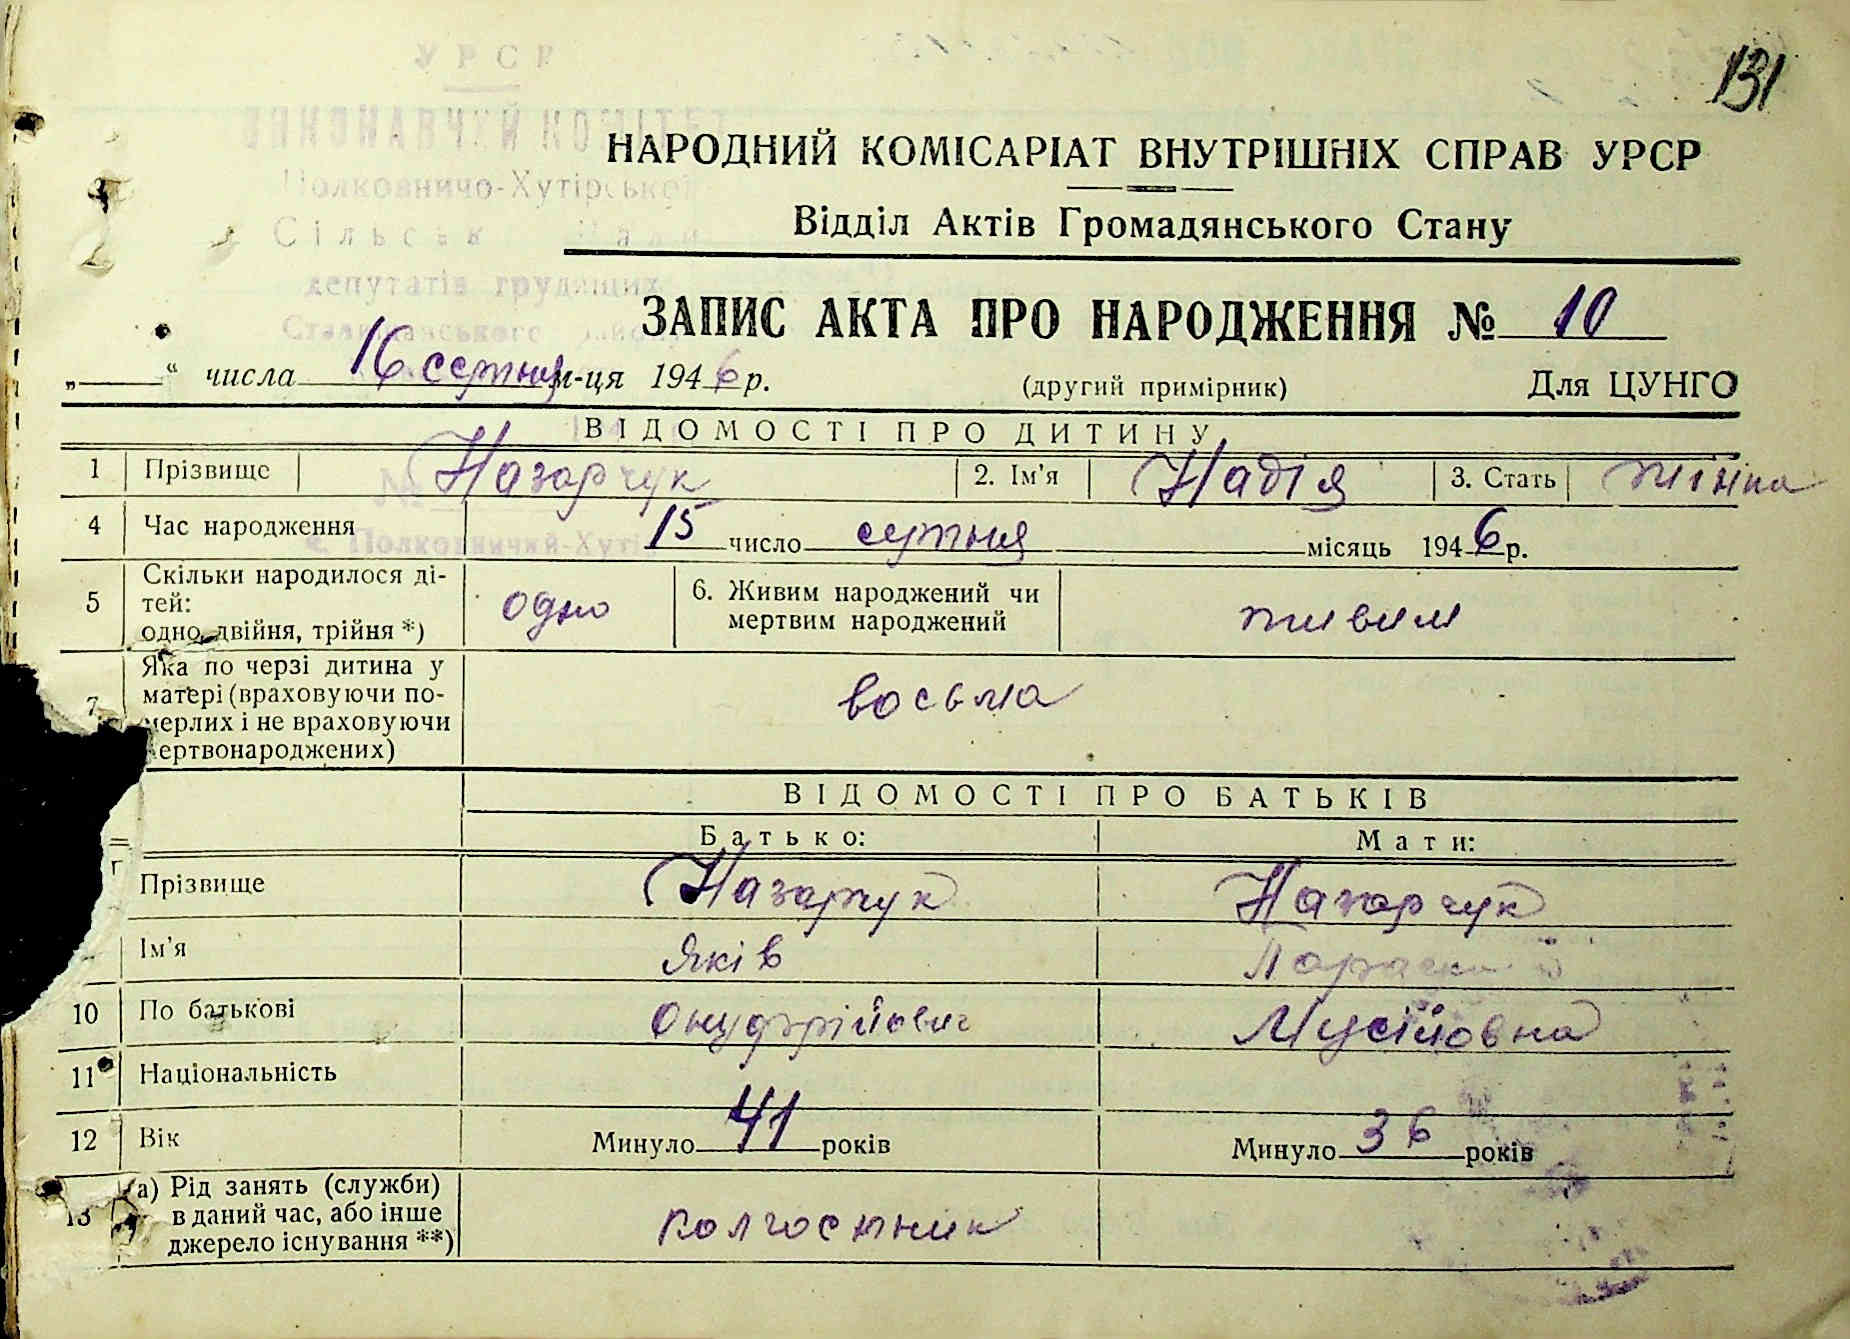 131
УРСР
ВИКОНАВЧИЙ КОМІТЕТ
Полковничо-Хутірської
Сільської Ради
депутатів трудящих
НАРОДНИЙ КОМІСАРІАТ ВНУТРІШНІХ СПРАВ УРСР
Відділ Актів Громадянського Стану
ЗАПИС АКТА ПРО НАРОДЖЕННЯ № 10
„ “ числа 16 серпня м-ця 1946 р. (другий примірник) Для ЦУНГО
ВІДОМОСТІ ПРО ДИТИНУ
1 Прізвище Назарчук 2. Ім'я Надія 3. Стать жінка
№
4 Час народження 15 число серпня місяць 1946 р.
с. Полковничий-Хутір
5 Скільки народилося ді-
тей:
одно, двійня, трійня *) одно 6. Живим народжений чи
мертвим народжений живим
7 Яка по черзі дитина у
матері (враховуючи по-
мерлих і не враховуючи
мертвонароджених) восьма
ВІДОМОСТІ ПРО БАТЬКІВ
Батько: Мати:
Прізвище Назарчук Назарчук
Ім'я Яків
10 По батькові Онуфрійович Мусіївна
11 Національність
12 Вік Минуло 41 років Минуло 36 років
13 а) Рід занять (служби)
в даний час, або інше
джерело існування **) колгоспник